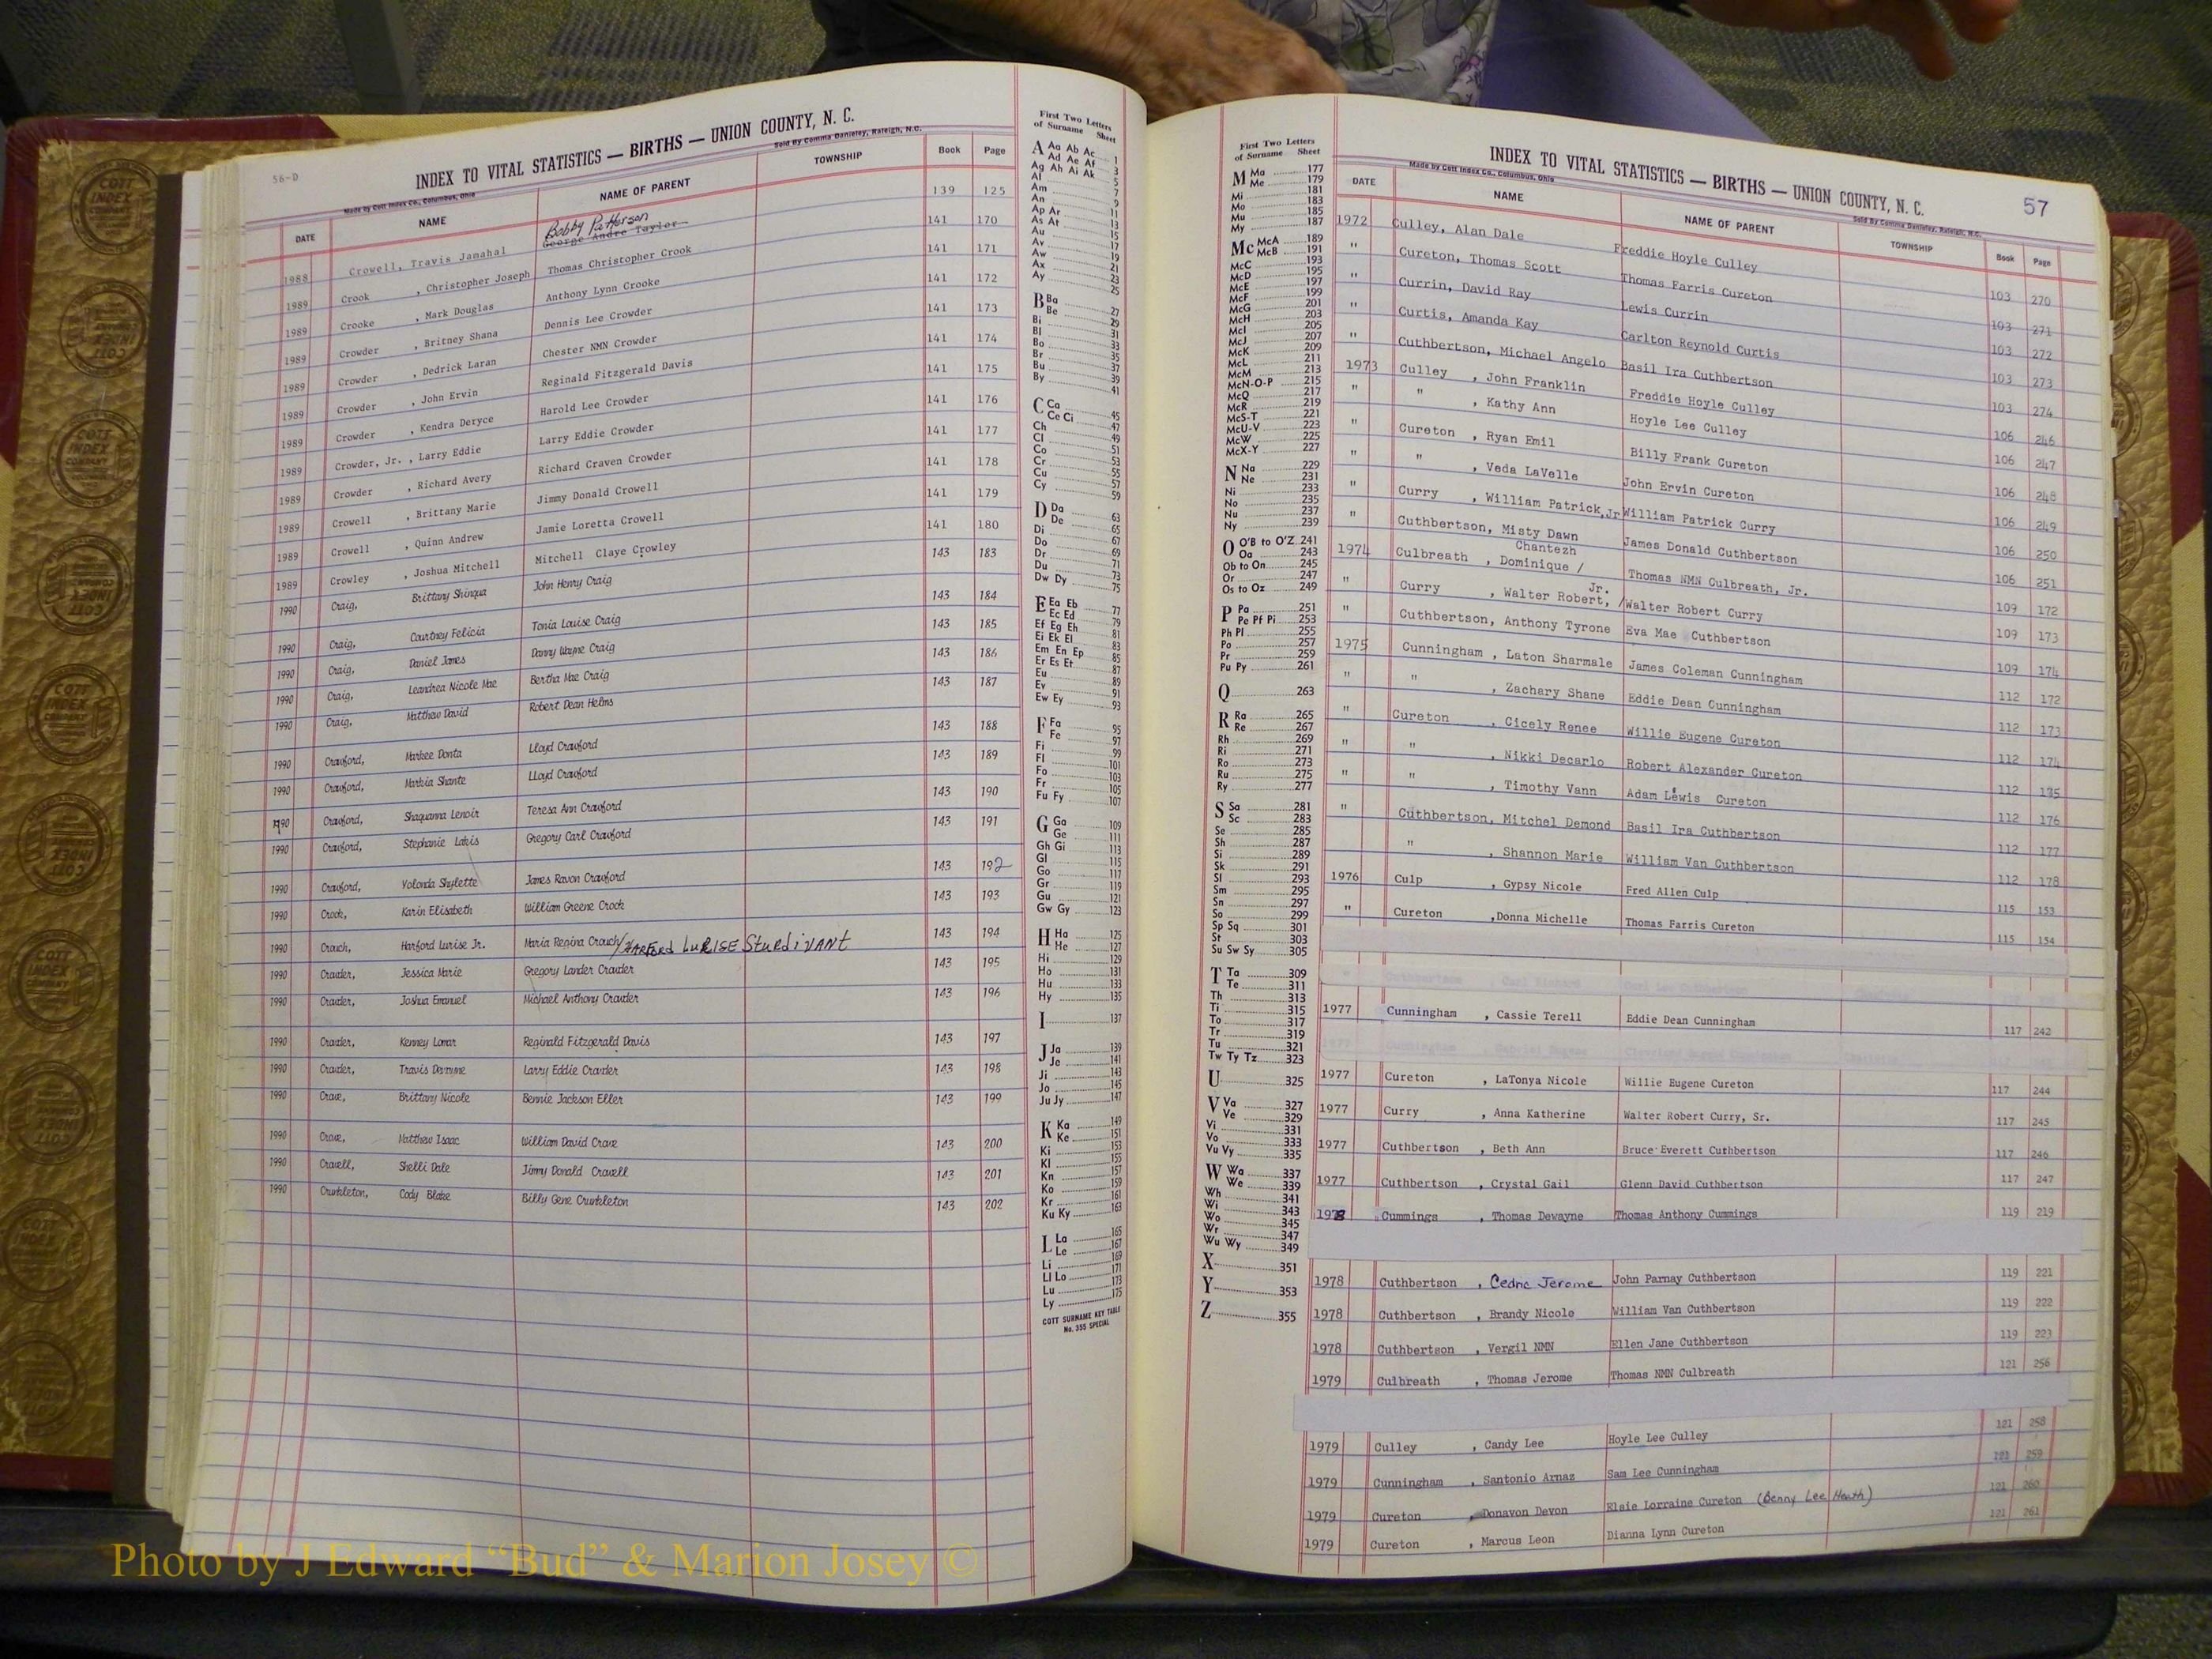 56-D
INDEX TO VITAL STATISTICS — BIRTHS — UNION COUNTY, N. C.
Made by Cott Index Co., Columbus, Ohio Sold By Comma Danieley, Raleigh, N.C.
DATE NAME NAME OF PARENT TOWNSHIP Book Page
Bobby Patterson
1988 Crowell, Travis Janahal George Andre Taylor 139 125
1989 Crook , Christopher Joseph Thomas Christopher Crook 141 170
1989 Crooke , Mark Douglas Anthony Lynn Crooke 141 171
1989 Crowder , Britney Shana Dennis Lee Crowder 141 172
1989 Crowder , Dedrick Laran Chester NMN Crowder 141 173
1989 Crowder , John Ervin Reginald Fitzgerald Davis 141 174
1989 Crowder , Kendra Deryce Harold Lee Crowder 141 175
1989 Crowder, Jr. , Larry Eddie Larry Eddie Crowder 141 176
1989 Crowder , Richard Avery Richard Craven Crowder 141 177
1989 Crowell , Brittany Marie Jimmy Donald Crowell 141 178
1989 Crowell , Quinn Andrew Jamie Loretta Crowell 141 179
1989 Crowley , Joshua Mitchell Mitchell Claye Crowley 141 180
1990 Craig, Brittany Shinqua John Henry Craig 143 183
1990 Craig, Courtney Felicia Tonia Louise Craig 143 184
1990 Craig, Daniel James Danny Wayne Craig 143 185
1990 Craig, Leandrea Nicole Mae Bertha Mae Craig 143 186
1990 Craig, Matthew David Robert Dean Helms 143 187
1990 Crawford, Markee Donta Lloyd Crawford 143 188
1990 Crawford, Markia Shante LLoyd Crawford 143 189
1990 Crawford, Shaquanna Lenoir Teresa Ann Crawford 143 190
1990 Crawford, Stephanie Gregory Carl Crawford 143 191
1990 Crawford, Yolonda Shylette James Ravon Crawford 143 192
1990 Crook, Karin Elisabeth William Greene Crook 143 193
1990 Crouch, Harford Lurise Jr. Maria Regina Crouch/HARFord LuRISE SturdiVANT 143 194
1990 Crowder, Jessica Marie Gregory Lander Crowder 143 195
1990 Crowder, Joshua Emanuel Michael Anthony Crowder 143 196
1990 Crowder, Kenney Lamar Reginald Fitzgerald Davis 143 197
1990 Crowder, Travis Larry Eddie Crowder 143 198
1990 Crowe, Brittany Nicole Bennie Jackson Eller 143 199
1990 Crowe, Matthew Isaac William David Crowe 143 200
1990 Crowell, Shelli Dale Jimmy Donald Crowell 143 201
1990 Crumbleton, Cody Blake Billy Gene Crumbleton 143 202
First Two Letters
of Surname Sheet
A Aa Ab Ac 1
Ad Ae Af 3
Ag Ah Ai Ak 5
Al 7
Am 9
An 11
Ap Ar 13
As At 15
Au 17
Av 19
Aw 21
Ax 23
Ay 25
B Ba 27
Be 29
Bi 31
Bl 33
Bo 35
Br 37
Bu 39
By 41
C Ca 45
Ce Ci 47
Ch 49
Cl 51
Co 53
Cr 55
Cu 57
Cy 59
D Da 63
De 65
Di 67
Do 69
Dr 71
Du 73
Dw Dy 75
E Ea Eb 77
Ec Ed 79
Ef Eg Eh 81
Ei Ek El 83
Em En Ep 85
Er Es Et 87
Eu 89
Ev 91
Ew Ey 93
F Fa 95
Fe 97
Fi 99
Fl 101
Fo 103
Fr 105
Fu Fy 107
G Ga 109
Ge 111
Gh Gi 113
Gl 115
Go 117
Gr 119
Gu 121
Gw Gy 123
H Ha 125
He 127
Hi 129
Ho 131
Hu 133
Hy 135
I 137
J Ja 139
Je 141
Ji 143
Jo 145
Ju Jy 147
K Ka 149
Ke 151
Ki 153
Kl 155
Kn 157
Ko 159
Kr 161
Ku Ky 163
L La 165
Le 167
Li 169
Ll Lo 171
Lu 173
Ly 175
COTT SURNAME KEY TABLE
No. 355 SPECIAL
First Two Letters
of Surname Sheet
M Ma 177
Me 179
Mi 181
Mo 183
Mu 185
My 187
Mc McA 189
McB 191
McC 193
McD 195
McE 197
McF 199
McG 201
McH 203
McI 205
McJ 207
McK 209
McL 211
McM 213
McN-O-P 215
McQ 217
McR 219
McS-T 221
McU-V 223
McW 225
McX-Y 227
N Na 229
Ne 231
Ni 233
No 235
Nu 237
Ny 239
O O'B to O'Z 241
Oa 243
Ob to On 245
Or 247
Os to Oz 249
P Pa 251
Pe Pf Pi 253
Ph Pl 255
Po 257
Pr 259
Pu Py 261
Q 263
R Ra 265
Re 267
Rh 269
Ri 271
Ro 273
Ru 275
Ry 277
S Sa 281
Sc 283
Se 285
Sh 287
Si 289
Sk 291
Sl 293
Sm 295
Sn 297
So 299
Sp Sq 301
St 303
Su Sw Sy 305
T Ta 309
Te 311
Th 313
Ti 315
To 317
Tr 319
Tu 321
Tw Ty Tz 323
U 325
V Va 327
Ve 329
Vi 331
Vo 333
Vu Vy 335
W Wa 337
We 339
Wh 341
Wi 343
Wo 345
Wr 347
Wu Wy 349
X 351
Y 353
Z 355
INDEX TO VITAL STATISTICS — BIRTHS — UNION COUNTY, N. C. 57
Made by Cott Index Co., Columbus, Ohio Sold By Comma Danieley, Raleigh, N.C.
DATE NAME NAME OF PARENT TOWNSHIP Book Page
1972 Culley, Alan Dale Freddie Hoyle Culley 103 270
" Cureton, Thomas Scott Thomas Farris Cureton 103 271
" Currin, David Ray Lewis Currin 103 272
" Curtis, Amanda Kay Carlton Reynold Curtis 103 273
" Cuthbertson, Michael Angelo Basil Ira Cuthbertson 103 274
1973 Culley , John Franklin Freddie Hoyle Culley 106 246
" " , Kathy Ann Hoyle Lee Culley 106 247
" Cureton , Ryan Emil Billy Frank Cureton 106 248
" " , Veda LaVelle John Ervin Cureton 106 249
" Curry , William Patrick, Jr William Patrick Curry 106 250
" Cuthbertson, Misty Dawn James Donald Cuthbertson 106 251
Chantezh
1974 Culbreath , Dominique / Thomas NMN Culbreath, Jr. 109 172
Jr.
" Curry , Walter Robert, / Walter Robert Curry 109 173
" Cuthbertson, Anthony Tyrone Eva Mae Cuthbertson 109 174
1975 Cunningham , Laton Sharmale James Coleman Cunningham 112 172
" " , Zachary Shane Eddie Dean Cunningham 112 173
" Cureton , Cicely Renee Willie Eugene Cureton 112 174
" " , Nikki Decarlo Robert Alexander Cureton 112 175
" " , Timothy Vann Adam Lewis Cureton 112 176
" Cuthbertson, Mitchel Demond Basil Ira Cuthbertson 112 177
" , Shannon Marie William Van Cuthbertson 112 178
1976 Culp , Gypsy Nicole Fred Allen Culp 115 153
" Cureton ,Donna Michelle Thomas Farris Cureton 115 154
1977 Cunningham , Cassie Terell Eddie Dean Cunningham 117 242
1977 Cureton , LaTonya Nicole Willie Eugene Cureton 117 244
1977 Curry , Anna Katherine Walter Robert Curry, Sr. 117 245
1977 Cuthbertson , Beth Ann Bruce Everett Cuthbertson 117 246
1977 Cuthbertson , Crystal Gail Glenn David Cuthbertson 117 247
1978 Cummings , Thomas Dewayne Thomas Anthony Cummings 119 219
1978 Cuthbertson , Cedric Jerome John Parnay Cuthbertson 119 221
1978 Cuthbertson , Brandy Nicole William Van Cuthbertson 119 222
1978 Cuthbertson , Vergil NMN Ellen Jane Cuthbertson 119 223
1979 Culbreath , Thomas Jerome Thomas NMN Culbreath 121 256
1979 Culley , Candy Lee Hoyle Lee Culley 121 258
1979 Cunningham , Santonio Arnaz Sam Lee Cunningham 121 259
1979 Cureton , Donavon Devon Elsie Lorraine Cureton (Benny Lee Heath) 121 260
1979 Cureton , Marcus Leon Dianna Lynn Cureton 121 261
Photo by J Edward “Bud” & Marion Josey ©